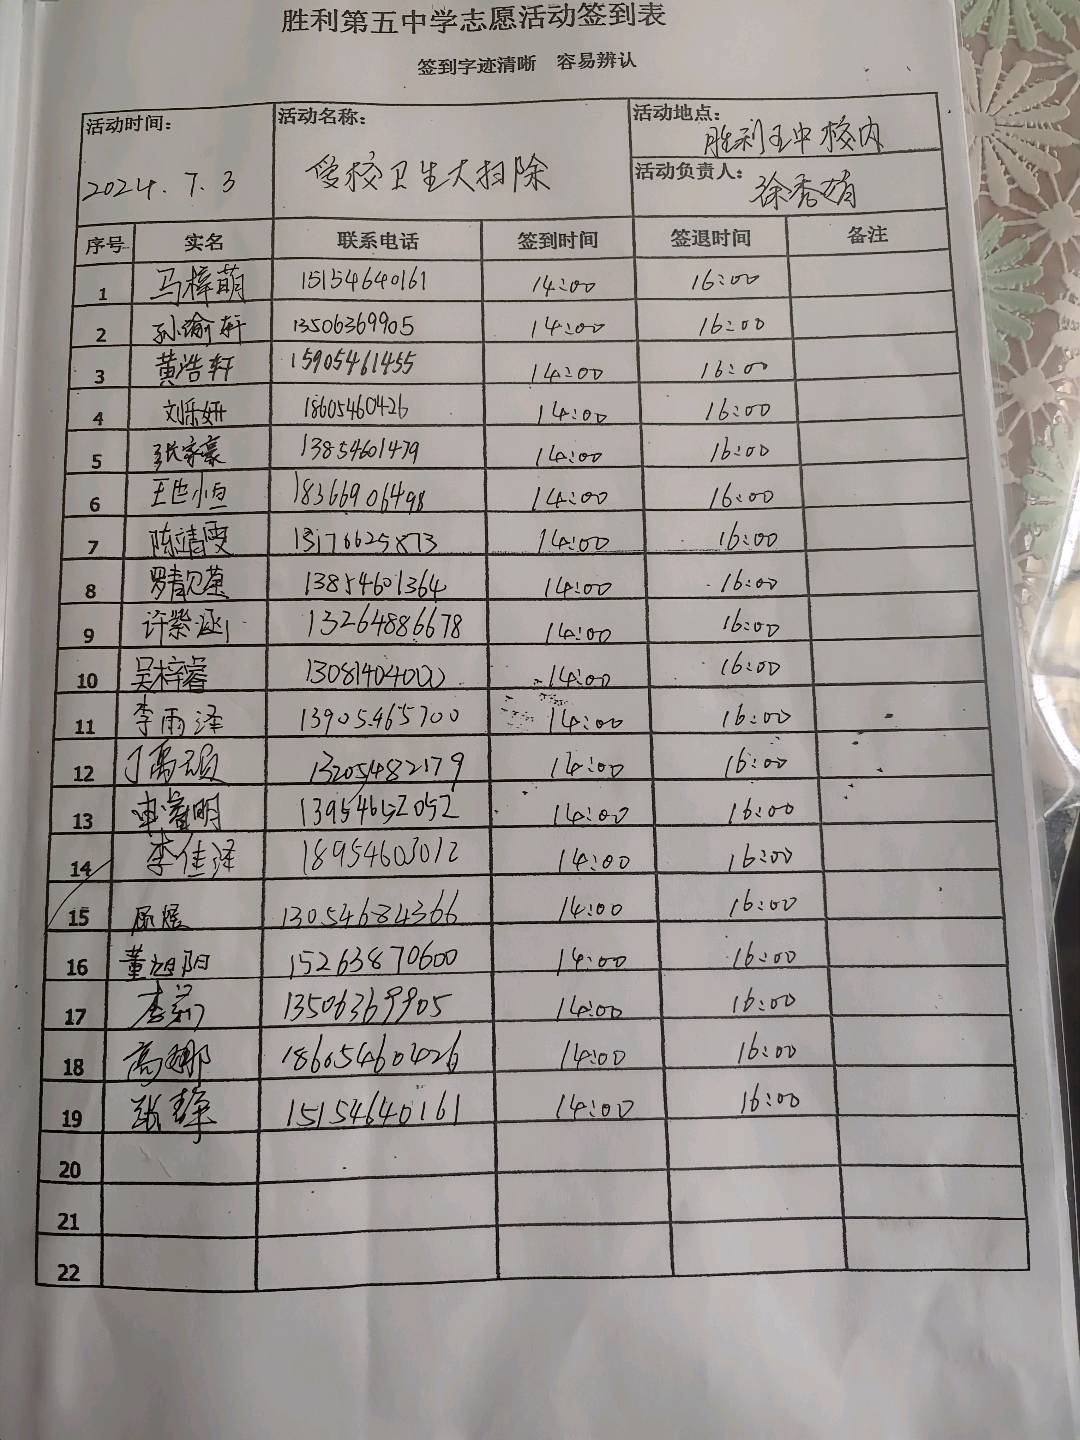 胜利第五中学志愿活动签到表
签到字迹清晰 容易辨认
活动时间: 2024.7.3
活动名称: 爱校卫生大扫除
活动地点: 胜利五中校内
活动负责人: 徐秀娟
序号 实名 联系电话 签到时间 签退时间 备注
1 马梓萌 15154640161 14:00 16:00
2 孙瑜轩 13506369905 14:00 16:00
3 黄浩轩 15905461455 14:00 16:00
4 刘乐妍 18605460426 14:00 16:00
5 张家豪 13854601479 14:00 16:00
6 王 18366906498 14:00 16:00
7 陈靖雯 13176625873 14:00 16:00
8 13854601364 14:00 16:00
9 许紫涵 13264886678 14:00 16:00
10 吴梓睿 13081404000 14:00 16:00
11 李雨泽 13905465700 14:00 16:00
12 丁禹硕 13205482179 14:00 16:00
13 14:00 16:00
14 李佳泽 18954603012 14:00 16:00
15 13054684366 14:00 16:00
16 董旭阳 15263870600 14:00 16:00
17 李莉 13506369905 14:00 16:00
18 高娜 18605460426 14:00 16:00
19 张静 15154640161 14:00 16:00
20
21
22